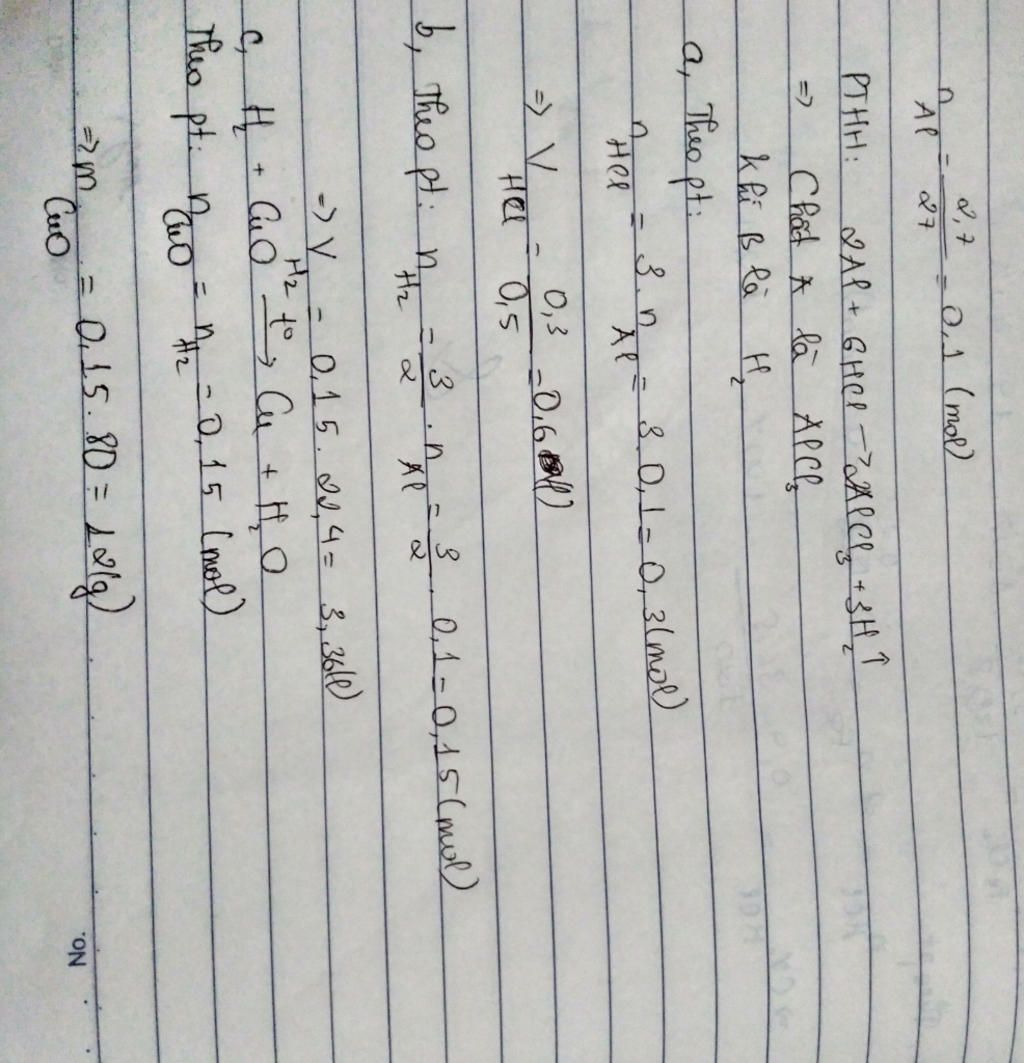 n_Al = 2,7/27 = 0,1 (mol)
PTHH: 2Al + 6HCl → 2AlCl₃ + 3H₂↑
=> Chất A là AlCl₃
khí B là H₂
a, Theo pt:
n_HCl = 3.n_Al = 3.0,1 = 0,3 (mol)
=> V_HCl = 0,3/0,5 = 0,6 (l)
b, Theo pt: n_H₂ = 3/2 . n_Al = 3/2 . 0,1 = 0,15 (mol)
=> V_H₂ = 0,15 . 22,4 = 3,36 (l)
c, H₂ + CuO –t°→ Cu + H₂O
Theo pt: n_CuO = n_H₂ = 0,15 (mol)
=> m_CuO = 0,15 . 80 = 12 (g)
No.